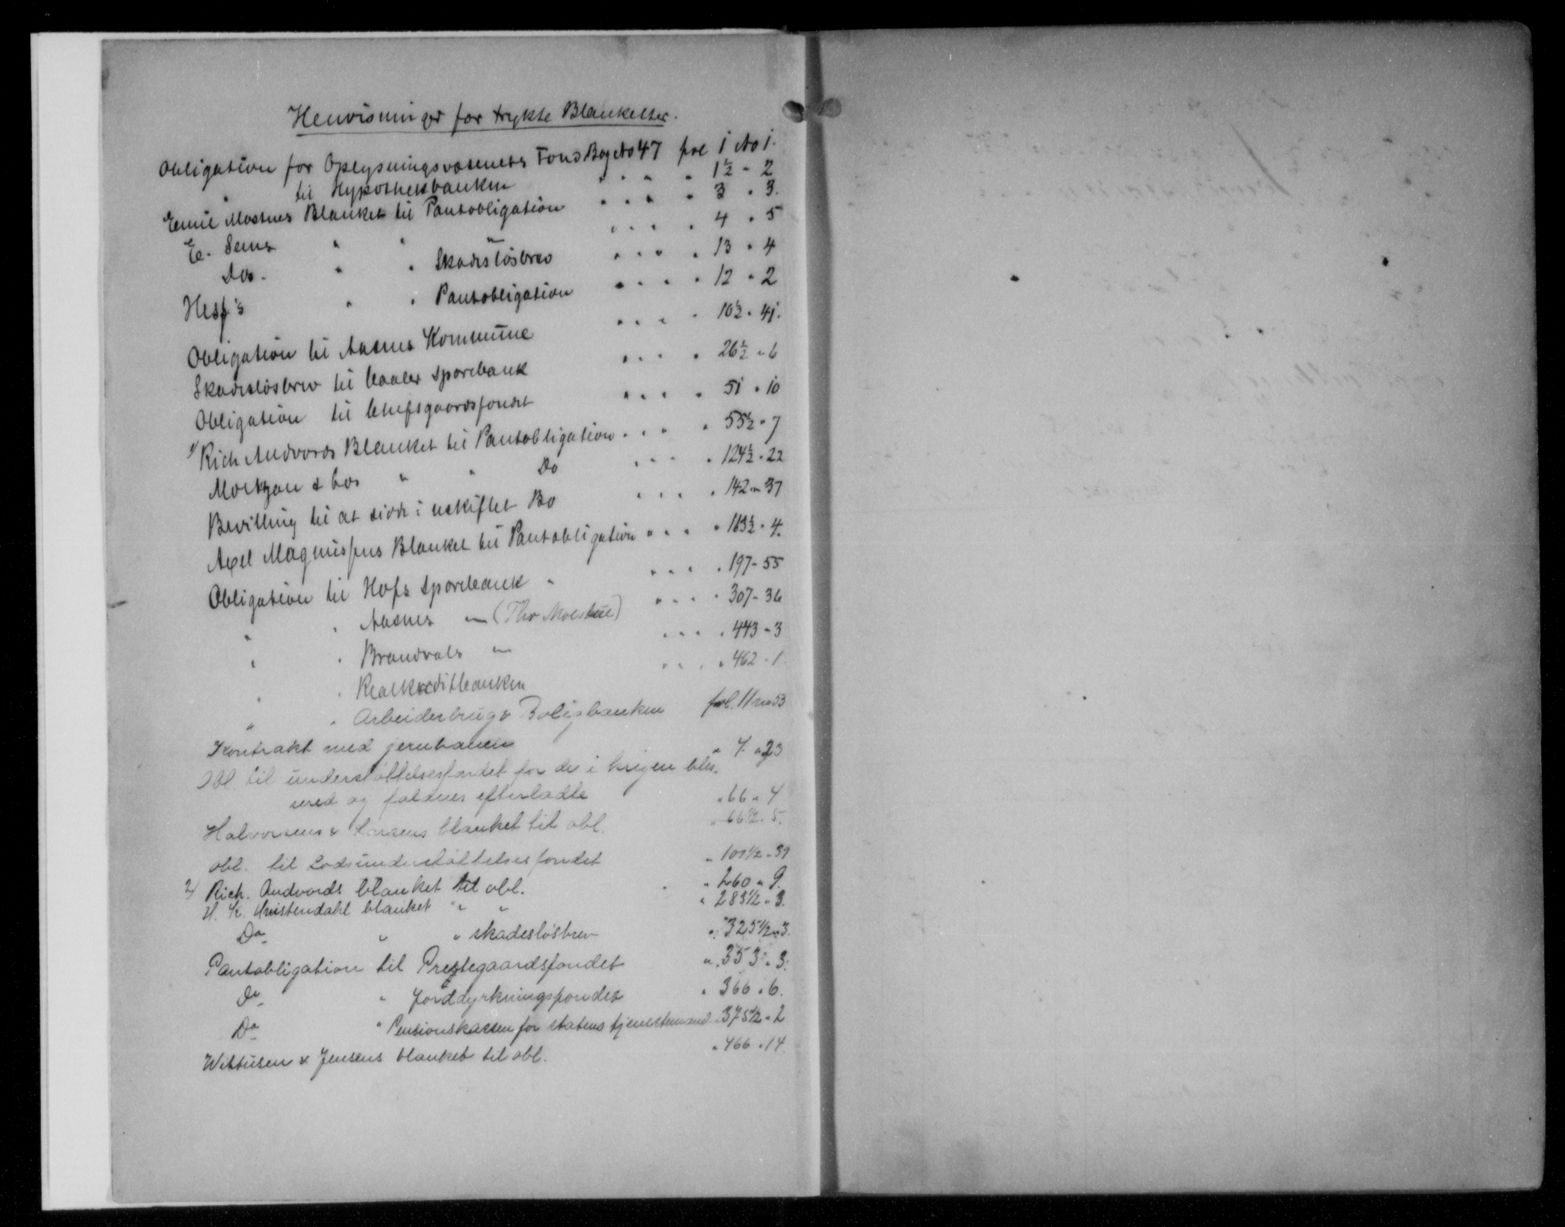 Henvisninger for trykte Blanketter.
Obligation for Oplysningsvæsenets Fond Bog No 47 fol 1 No 1.
" til Hypothekbanken " " " " 1½ - 2
Emil Mostues Blanket til Pantobligation " " " " 3 " 3.
E. Sems " " " " " " " 4 " 5
Do. " " Skadesløsbrev " " " " 13 " 4
" " Pantobligation " " " " 12 " 2
Obligation til Aasnes Kommune " " " " 10½ " 41.
Skadesløsbrev til Vaaler Sparebank " " " " 26½ " 6
Obligation til fondet " " " " 51 " 10
1/ Rich Andvords Blanket til Pantobligation " " " " 55½ " 7
& Cos " " Do " " " " 124½ " 22
Bevilling til at sidde i uskiftet Bo " " " " 142 " 37
Axel Magnussens Blanket til Pantobligation " " " " 183½ " 4.
Obligation til Hofs Sparebank " " " " " 197 - 55
" " Aasnes — (Thv Moestue) " " " " 307 - 36
" " Brandvals — " " " " 443 - 3
" " Realkreditbanken " " " " 462 - 1
" " Arbeiderbrug & Boligbanken fol. 11 no 53
Kontrakt med jernbanen " 7. " 23
Obl. til understøttelsesfondet for de i krigen bles-
sered og faldnes efterladte " 66 " 4
Halvorsens & Larsens blanket til obl. " 66½ " 5.
Obl. til Lodsunderstøttelsesfondet " 101½ " 31
2/ Rich. Andvords blanket til obl. " 260 " 9.
H. K. Kristendahl blanket " " " 283½ " 3.
Do " " skadesløsbrev " 325½ " 3.
Pantobligation til Prestegaardsfondet " 353 " 3.
Do " Jorddyrkningsfondet " 366 " 6.
Do " Pensionskassen for statens tjenestemænd " 375½ " 2
Wittusen & Jensens blanket til obl. " 466 " 14.